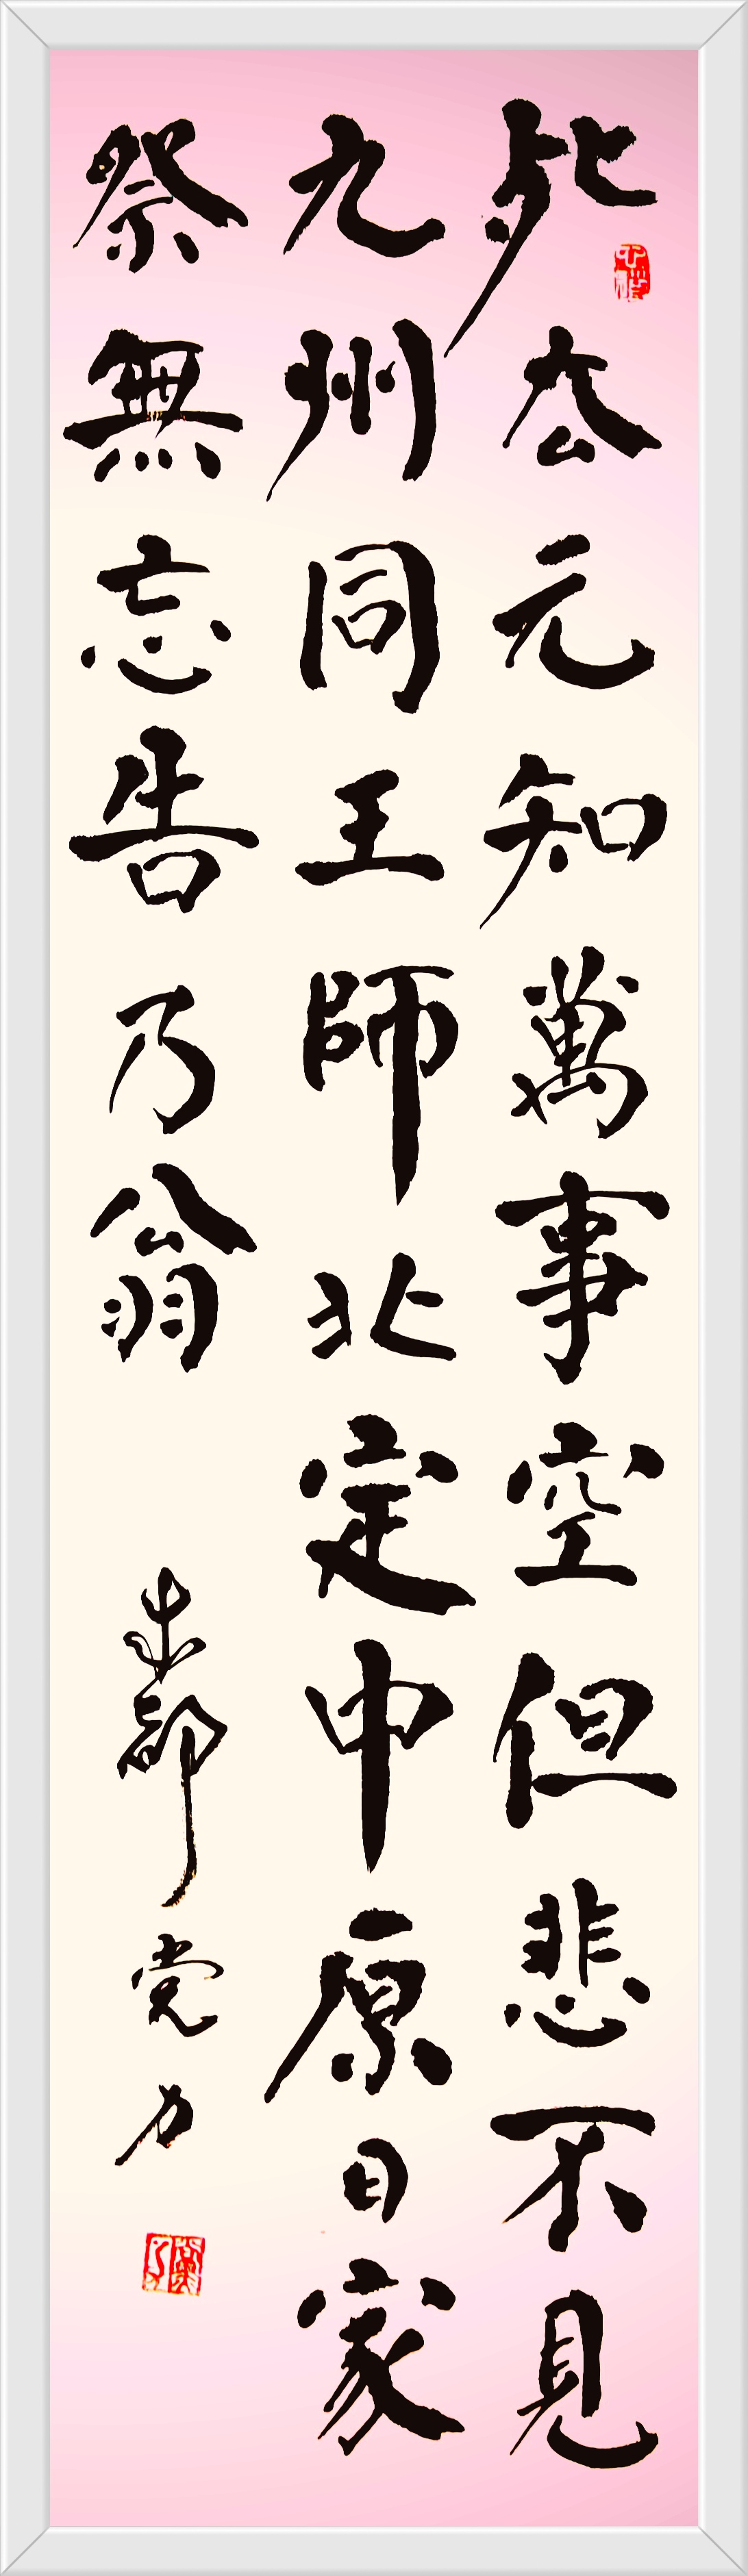 死去元知萬事空但悲不見
九州同王師北定中原日家
祭無忘告乃翁
党力